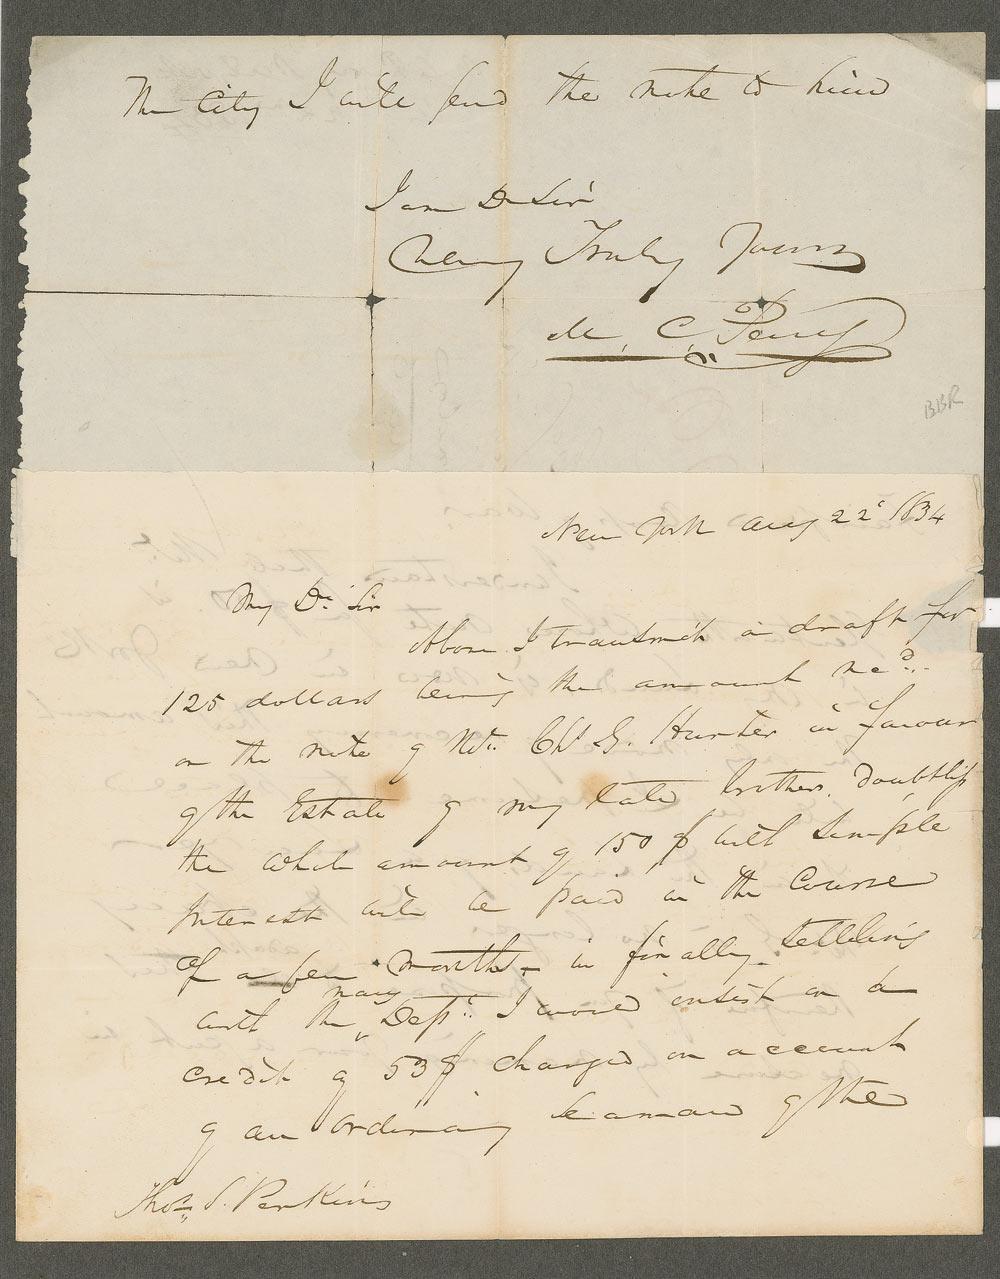 The City I will send the note to him
I am Dr Sir
Very Truly Yours
M. C. Perry
BBR
New York Aug 22d 1834
My Dr Sir
Above I transmit a draft for
125 dollars being the amount recd.
on the note of Mr. Chs G. Hunter in favour
of the Estate of my late brother. Doubtless
the whole amount of 150 $ with simple
Interest will be paid in the course
of a few months - in finally settling
navy
with the Dept. I would insist on a
credit of 53 $ charged on account
of an ordinary Seaman of the
Thos. S. Perkins